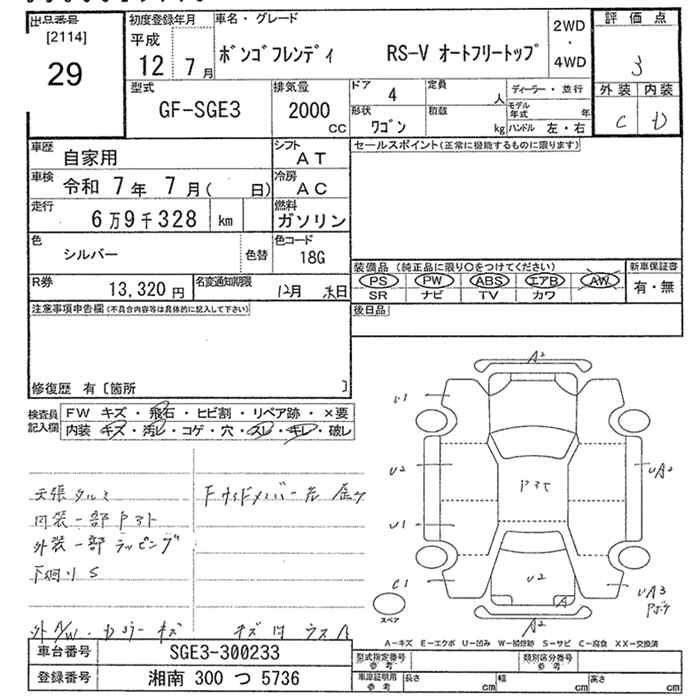 出品番号
[2114]
29
初度登録年月
平成 12 7月
車名・グレード
ボンゴフレンディ RS-V オートフリートップ
2WD・4WD
評価点
3
外装 内装
C D
型式
GF-SGE3
排気量
2000 cc
ドア 4
定員 人
ディーラー・並行
形状 ワゴン
積載 kg
モデル年式 年
ハンドル 左・右
車歴 自家用
シフト AT
セールスポイント(正常に機能するものに限ります)
車検 令和 7年 7月( 日)
冷房 AC
走行 6万9千328 km
燃料 ガソリン
色 シルバー 色替
色コード 18G
装備品 (純正品に限り○をつけてください)
新車保証書
PS PW ABS エアB AW
有・無
SR ナビ TV カワ
R券 13,320円
名変通知期限 12月 末日
後日品
注意事項申告欄(不具合内容等は具体的に記入して下さい)
修復歴 有〔箇所 〕
検査員記入欄
FW キズ・飛石・ヒビ割・リペア跡・×要
内装 キズ・汚レ・コゲ・穴・スレ・キレ・破レ
天張タルミ
内装一部
外装一部ラッピング
下廻りS
外A/W・カラーキズ
A2
U1
U2
UA2
U1
U2
A
C1
UA3
A2
スペア
A-キズ E-エクボ U-凹み W-補修跡 S-サビ C-腐食 XX-交換済
車台番号 SGE3-300233
登録番号 湘南 300 つ 5736
型式指定番号 参考
類別区分番号 参考
車庫証明用 参考
長さ cm
幅 cm
高さ cm